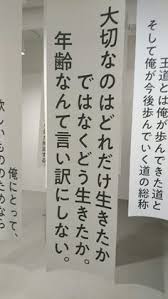 王道とは俺が歩んできた道と
そして俺が今後歩んでいく道の総称
大切なのはどれだけ生きたか
ではなくどう生きたか。
年齢なんて言い訳にしない。
俺にとって、
欲しいもののためなら